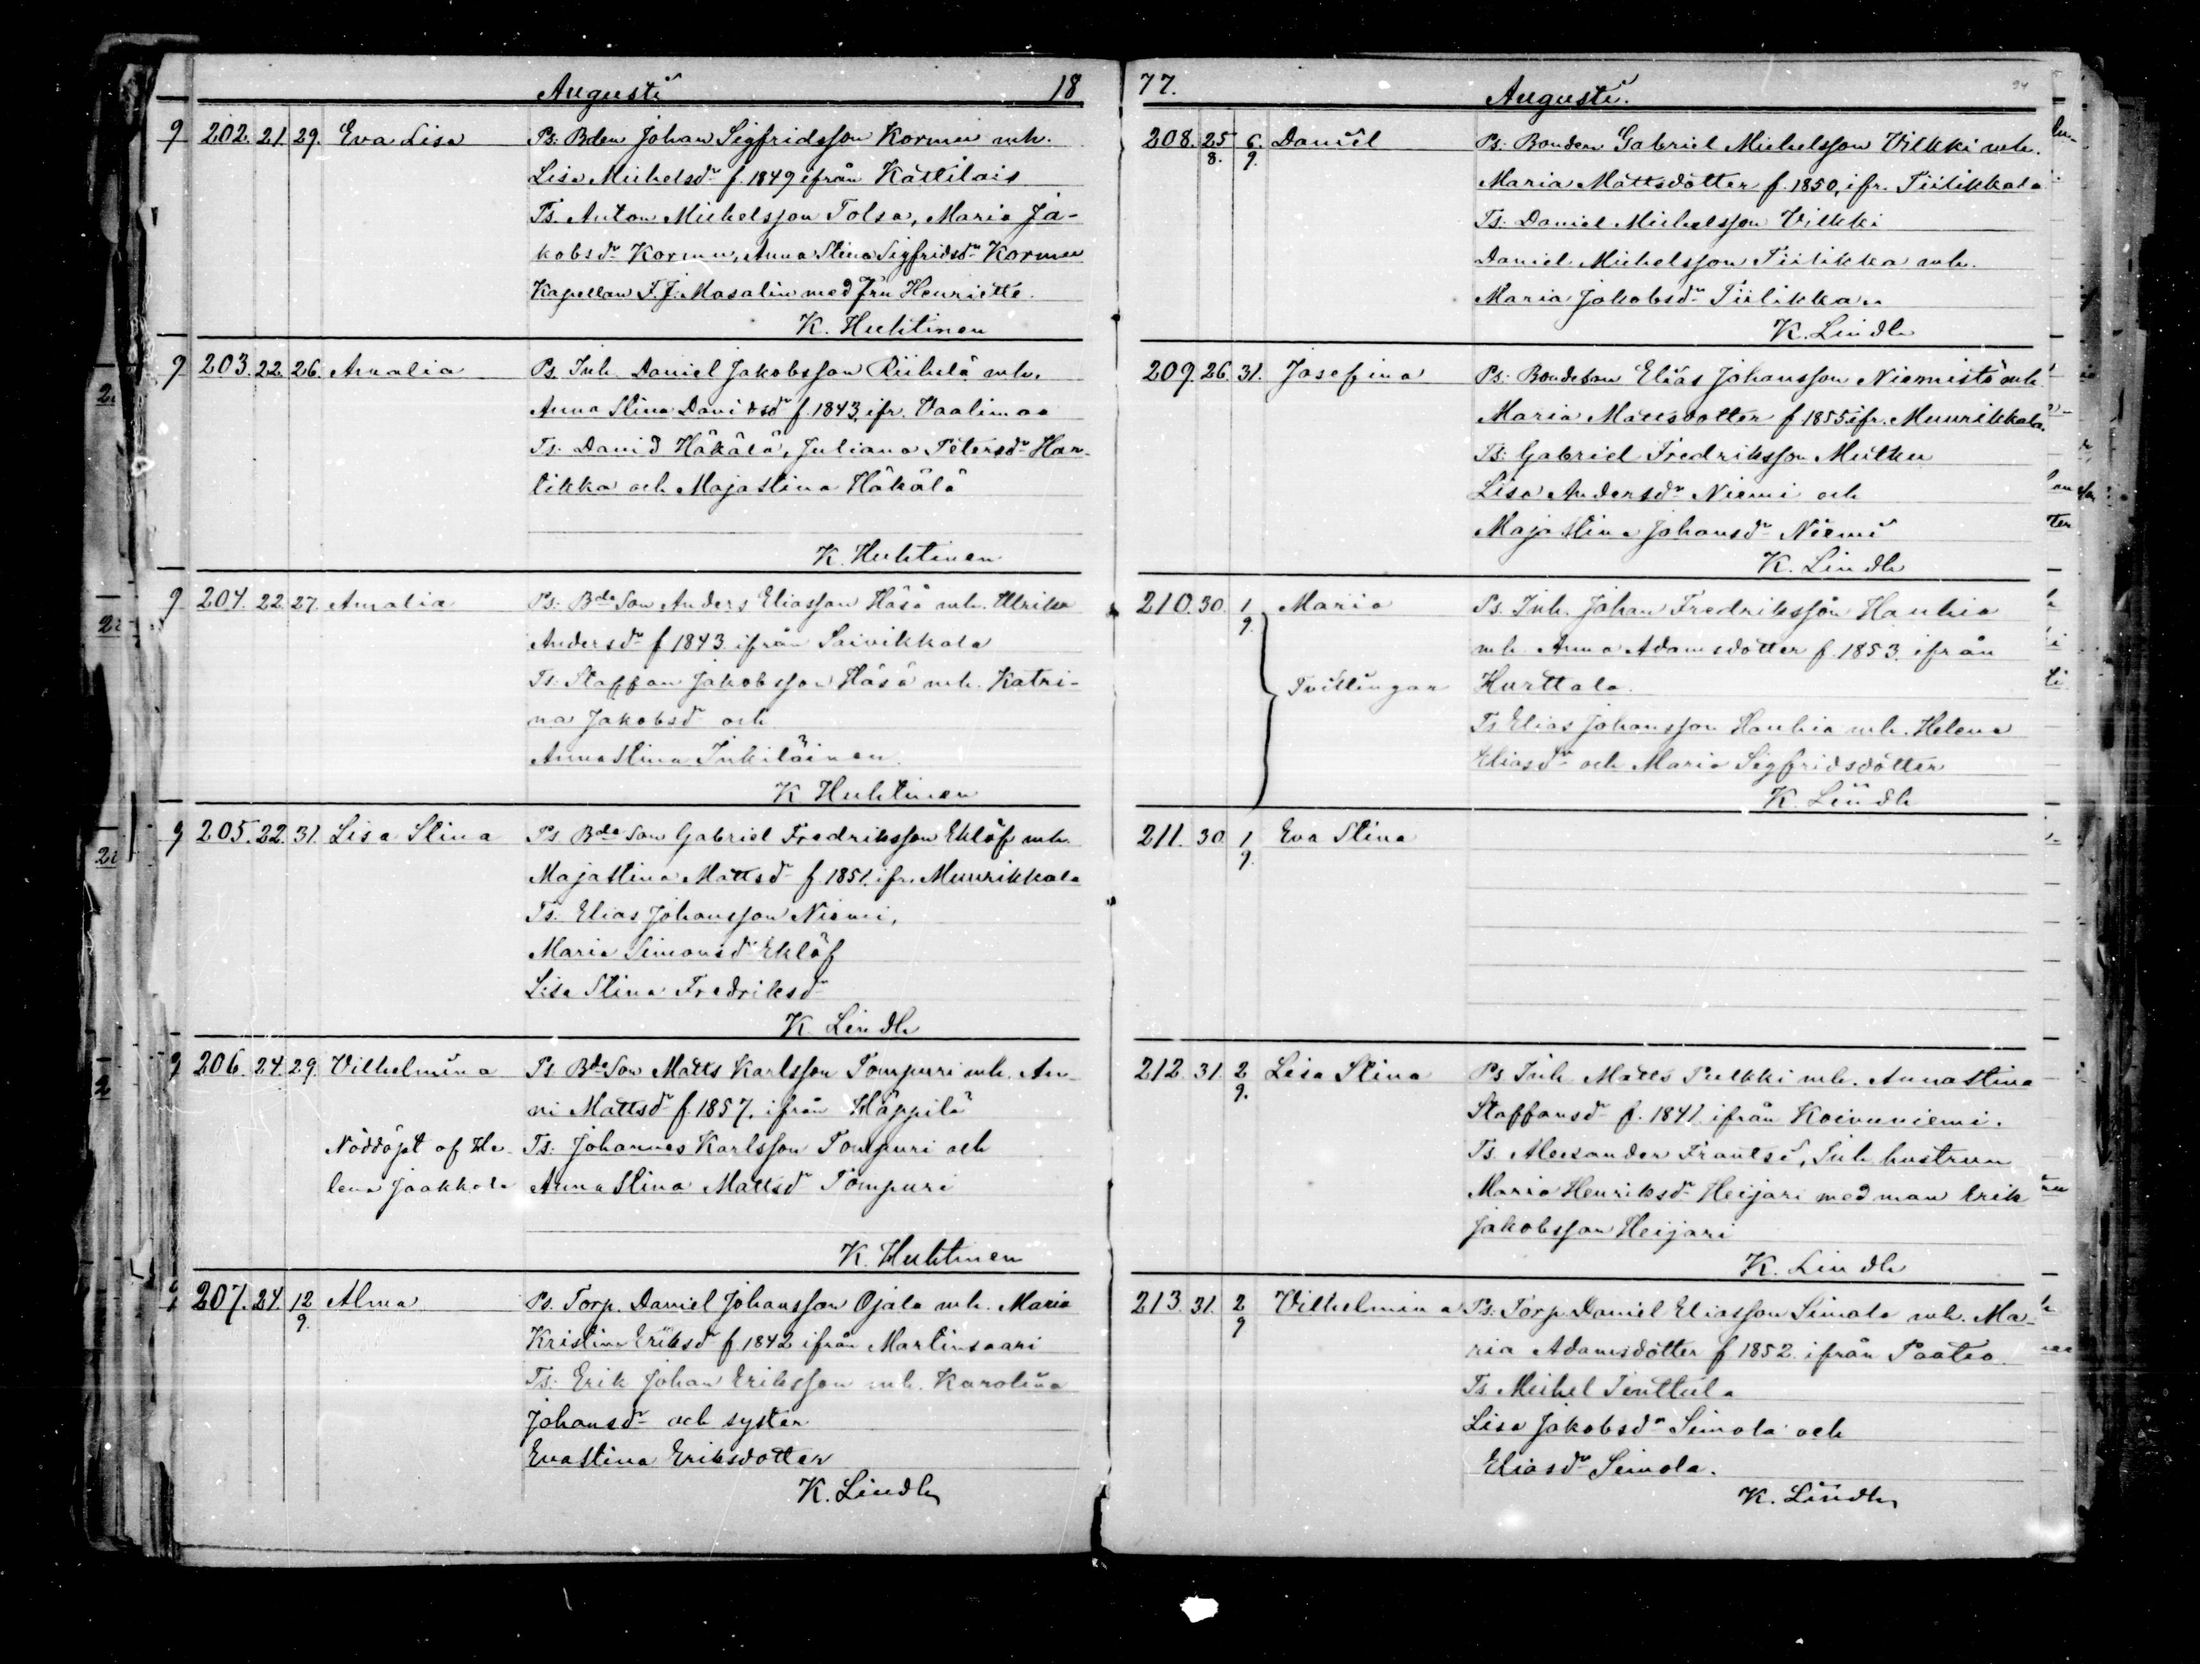 Augusti 18
202. 21. 29. Eva Lisa Ps. Bden Johan Sigfridsson Kormu mh.
Lisa Michelsdr f. 1849 ifrån Kattilais
Ts. Anton Michelsson Tolsa, Maria Ja-
kobsdr Kormu, Anna Stina Sigfridsdr Kormu
Kapellan F. J. Masalin med fru Henriette.
K. Huhtinen
203. 22. 26. Amalia Ps. Inh. Daniel Jakobsson Riihelä mh.
Anna Stina Davidsdr f. 1843, ifr. Vaalimaa
Ts. David Häkälä, Juliana Petersdr Har-
likka och Maja Stina Häkälä
K. Huhtinen
204. 22. 27. Amalia Ps. Bde Son Anders Eliasson Häsä mh. Ulrika
Andersdr f 1843. ifrån Saivikkala
Ts. Staffan Jakobsson Häsä mh. Katri-
na Jakobsdr och
Anna Stina Inkiläinen.
K Huhtinen
205. 22. 31. Lisa Stina Ps. Bde Son Gabriel Fredriksson Eklöf mh.
Maja Stina Mattsdr f. 1851. ifr. Muurikkala
Ts. Elias Johansson Niemi,
Maria Simonsdr Eklöf
Lisa Stina Fredriksdr
K Lindh
206. 24. 29. Vilhelmina Ps Bde Son Matts Karlsson Pompuri mh. An-
ni Mattsdr f. 1857. ifrån Häppilä
Nöddöpt af He- Ts. Johannes Karlsson Pompuri och
lena Jaakkola Anna Stina Mattsdr Pompuri
K. Huhtinen
207. 24. 12 Alma Ps. Torp. Daniel Johansson Ojala mh. Maria
9. Kristina Eriksdr f. 1842 ifrån Martinsaari
Ts. Erik Johan Eriksson mh. Karolina
Johansdr och syster
Eva Stina Eriksdotter
K. Lindh
77. Augusti. 94
208. 25 6. Daniel Ps. Bonden Gabriel Michelsson Vilkki mh.
8. 9. Maria Mattsdotter f. 1850, ifr. Tiilikkala
Ts. Daniel Michelsson Vilkki
Daniel Michelsson Tiilikka mh.
Maria Jakobsdr Tiilikka.
K. Lindh
209. 26. 31. Josefina Ps. Bondeson Elias Johansson Niemistö mh
Maria Mattsdotter f 1855. ifr. Muurikkala.
Ts. Gabriel Fredriksson Mutku
Lisa Andersdr Niemi och
Maja Stina Johansdr Niemi
K. Lindh
210. 30. 1 Maria Ps. Inh. Johan Fredriksson Hauhia
9. mh. Anna Adamsdotter f. 1853. ifrån
Tvillingar Hurttala.
Ts Elias Johansson Hauhia mh. Helena
Eliasdr och Maria Sigfridsdotter
K. Lindh
211. 30. 1 Eva Stina
9.
212. 31. 2 Lisa Stina Ps. Inh. Matts Pulkki mh. Anna Stina
9. Staffansdr f. 1841. ifrån Koivuniemi.
Ts. Alexander Frantsi, Inh. hustrun
Maria Henriksdr Heijari med man Erik
Jakobsson Heijari
K. Lindh
213. 31. 2 Vilhelmina Ps. Torp. Daniel Eliasson Simola mh. Ma-
9 ria Adamsdotter f 1852. ifrån Paatio.
Ts. Michel Tenttula
Lisa Jakobsdr Simola och
Eliasdr Simola.
K. Lindh